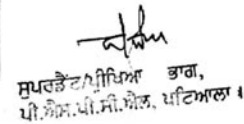 ਸੁਪਰਡੈਂਟ/ਪ੍ਰੀਖਿਆ ਭਾਗ,
ਪੀ.ਐਸ.ਪੀ.ਸੀ.ਐਲ, ਪਟਿਆਲਾ ।